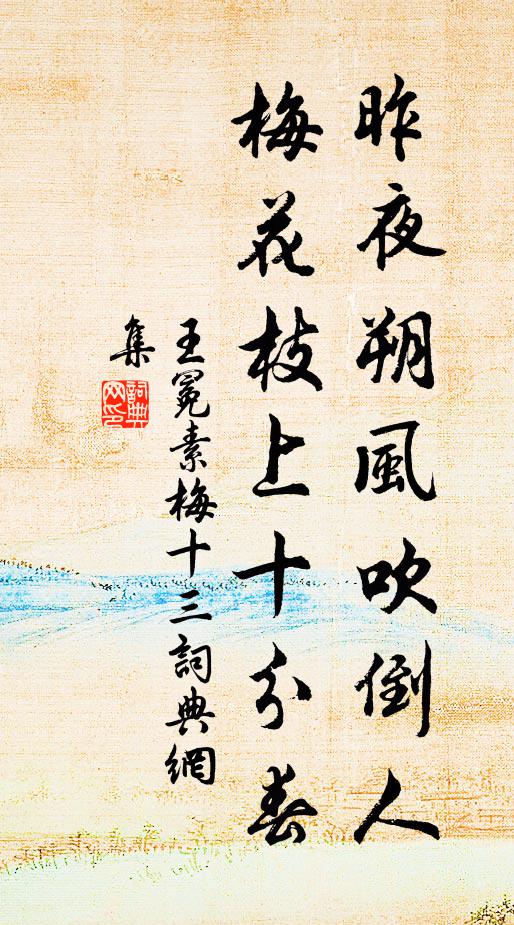 昨夜朔風吹倒人
梅花枝上十分春
王冕素梅十三詞典網
集
詞典
网印